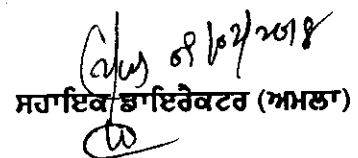 01/02/2018
ਸਹਾਇਕ ਡਾਇਰੈਕਟਰ (ਅਮਲਾ)